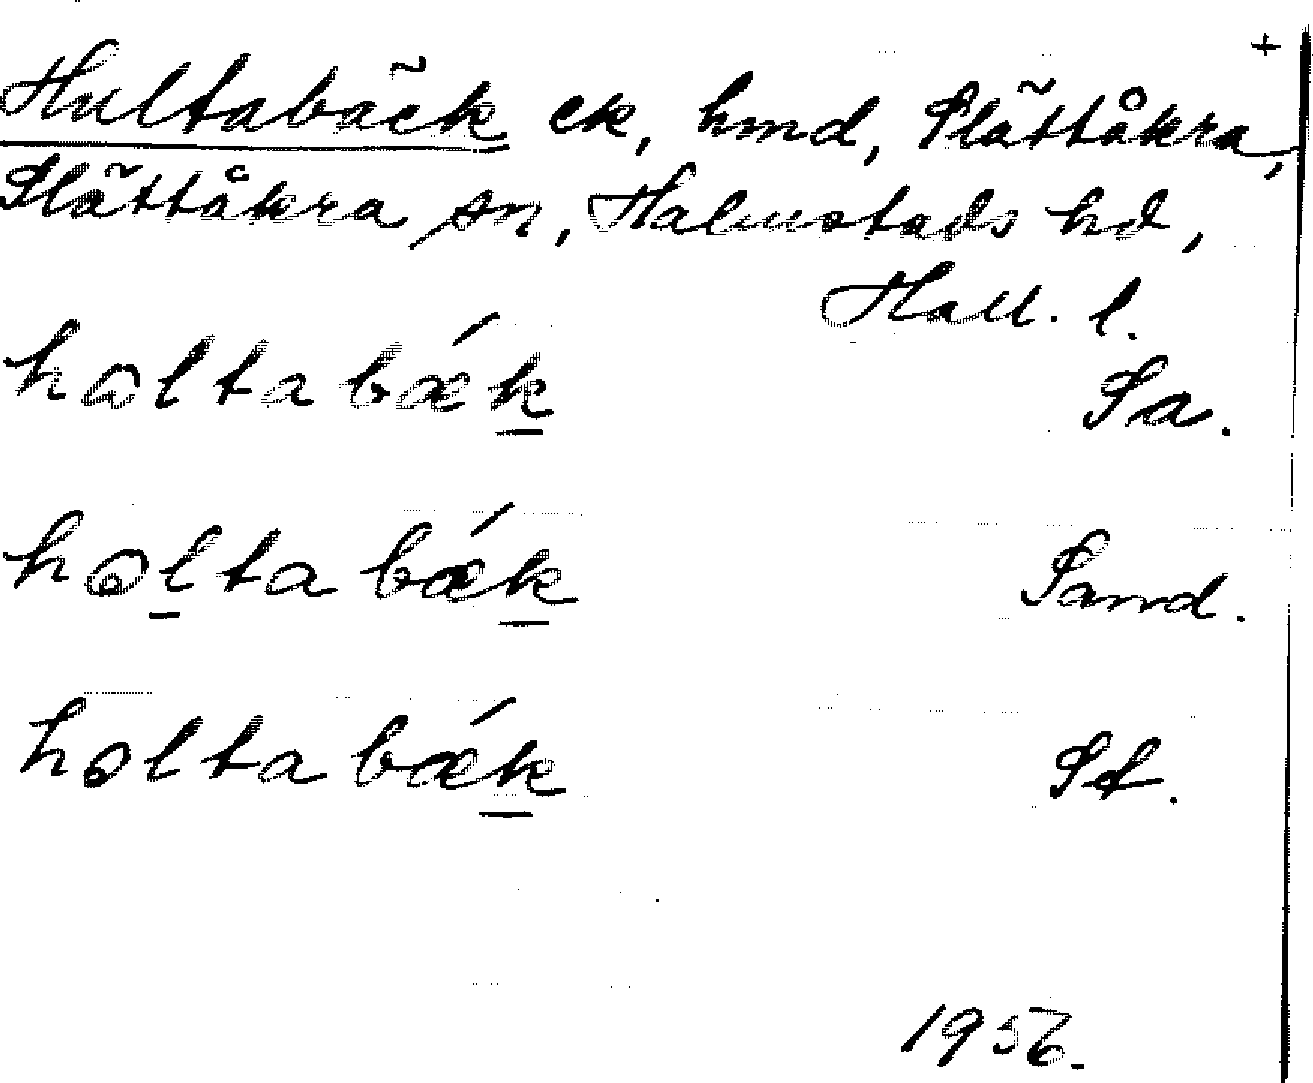 +
Hultabäck ck, hmd, Slättåkra,
Slättåkra sn, Halmstads hd,
Hall. l.
holtabǽk Sa.
holtabǽk Sand.
holtabǽk
1956.